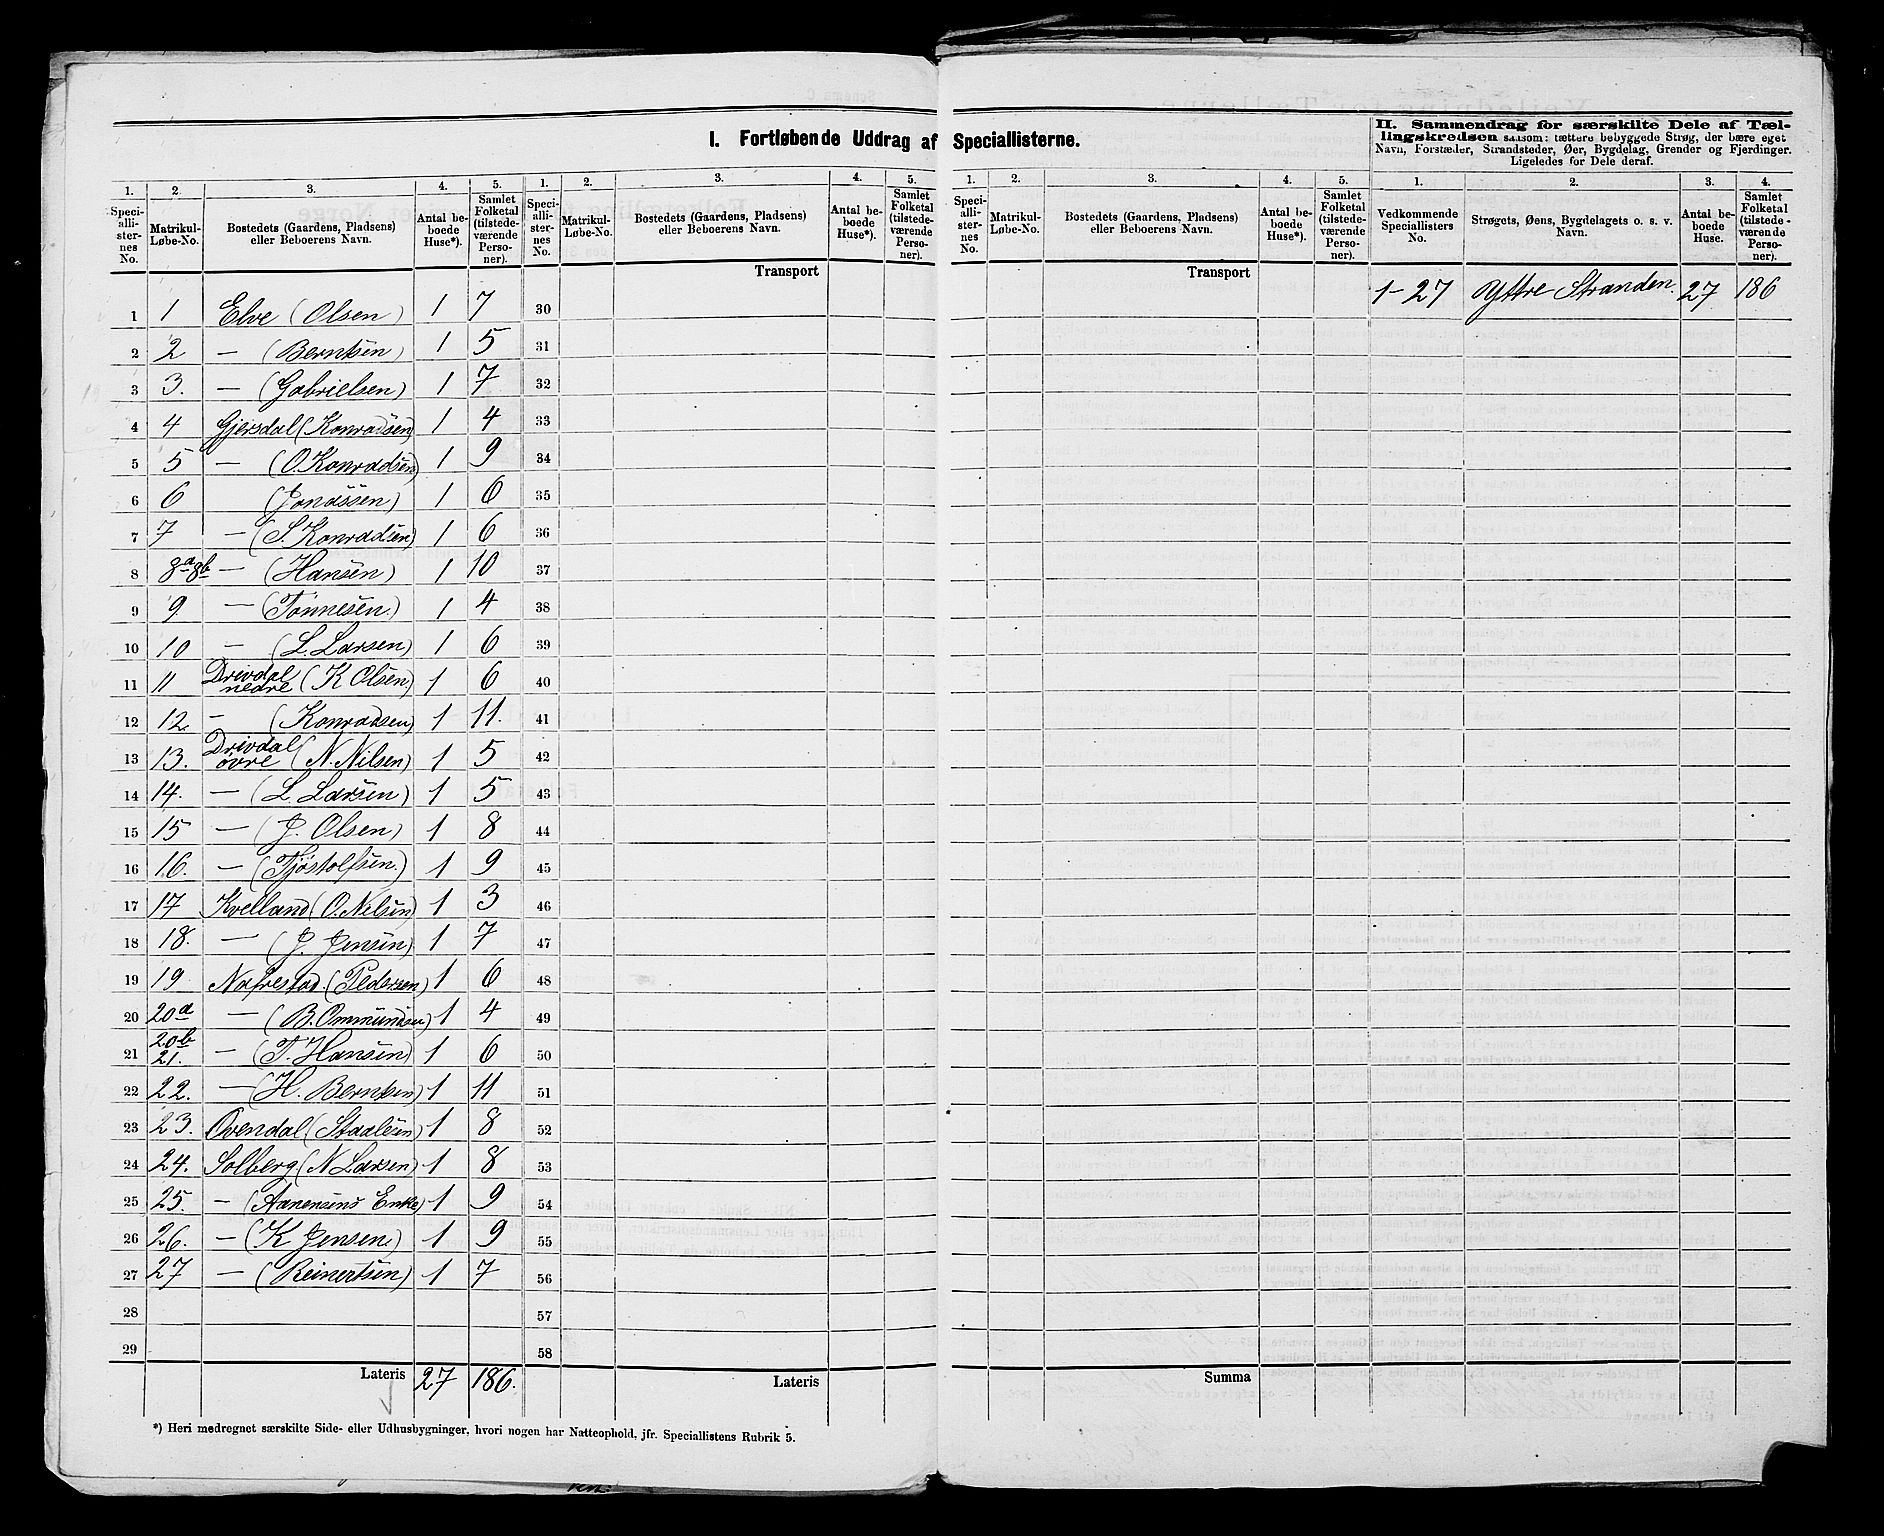 I. Fortløbende Uddrag af Speciallisterne.
II. Sammendrag for særskilte Dele af Tæl-
lingskredsen saasom: tættere bebyggede Strøg, der bære eget
Navn, Forstæder, Strandsteder, Øer, Bygdelag, Grender og Fjerdinger.
Ligeledes for Dele deraf.
1. 2. 3. 4. 5. 1. 2. 3. 4. 5. 1. 2. 3. 4. 5. 1. 2. 3. 4.
Speci-alli-ster-nes No. Matrikul-Løbe-No. Bostedets (Gaardens, Pladsens) eller Beboerens Navn. Antal be-boede Huse*). Samlet Folketal (tilstede-værende Perso-ner).
Speci-alli-ster-nes No. Matrikul-Løbe-No. Bostedets (Gaardens, Pladsens) eller Beboerens Navn. Antal be-boede Huse*). Samlet Folketal (tilstede-værende Perso-ner).
Speci-alli-ster-nes No. Matrikul-Løbe-No. Bostedets (Gaardens, Pladsens) eller Beboerens Navn. Antal be-boede Huse*). Samlet Folketal (tilstede-værende Perso-ner).
Vedkommende Speciallisters No. Strøgets, Øens, Bygdelagets o. s. v. Navn. Antal be-boede Huse. Samlet Folketal (tilstede-værende Perso-ner).
Transport Transport
1-27 Yttre Stranden. 27 186
1 1 Elve (Olsen) 1 7 30
2 2 — (Berntsen) 1 5 31
3 3. — (Gabrielsen) 1 7 32
4 4 Gjersdal (Konradsen) 1 4 33
5 5 — (O. Konradsen) 1 9 34
6 6 (Jonassen) 1 6 35
7 7 — (S. Konradsen) 1 6 36
8 8a 8b — (Hansen) 1 10 37
9 9 — (Tønnesen.) 1 4 38
10 10 — (L. Larsen) 1 6 39
11 11 Drivdal nedre (K Olsen) 1 6 40
12 12 — (Konradsen) 1 11. 41
13 13. Drivdal øvre (N. Nilsen) 1 5 42
14 14. — (L. Larsen) 1 5 43
15 15 — (J. Olsen) 1 8 44
16 16. — (Tjøstolfsen.) 1 9 45
17 17 Kvelland (O. Nilsen) 1 3 46
18 18. — (J. Jensen) 1 7 47
19 19 Nafrestad. (Pedersen) 1 6 48
20 20a — (B. Ommundsen) 1 4 49
21 20b 21. — (T. Hansen) 1 6 50
22 22. — (H. Berntsen) 1 11 51
23 23. Ovendal (Staalesen) 1 8 52
24 24. Solberg (N Larsen) 1 8 53
25 25. — (Aanensens Enke) 1 9 54
26 26. — (K Jensen) 1 9 55
27 27 — (Reinertsen) 1 7 56
28 57
29 58
Lateris 27 186. Lateris Summa
*) Heri medregnet særskilte Side- eller Udhusbygninger, hvori nogen har Natteophold, jfr. Speciallistens Rubrik 5.